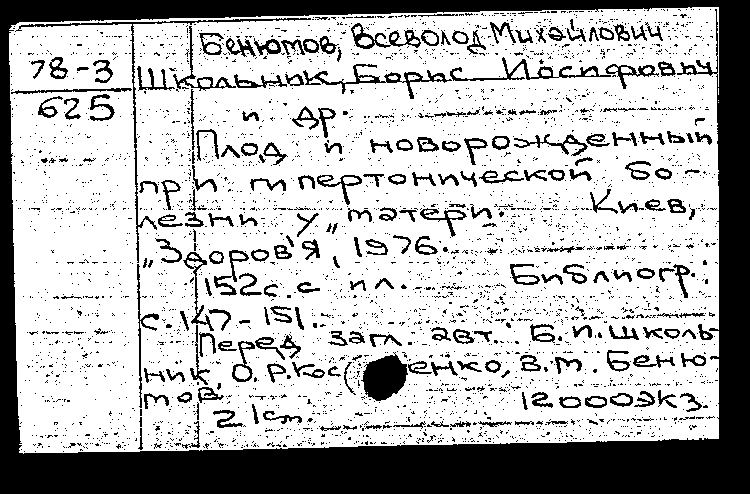 Бенюмов, Всеволод Михайлович
78-3
Школьник, Борис Иосифович
625
и др.
Плод и новорожденный
при гипертонической бо-
лезни у матери. Киев,
"Здоров'я, 1976.
152с. с ил. Библиогр.:
с. 147-151.
Перед загл. авт.: Б.И. Школь-
ник, О.Р. Кос енко, В.М. Беню-
мов
21см. 12000экз.